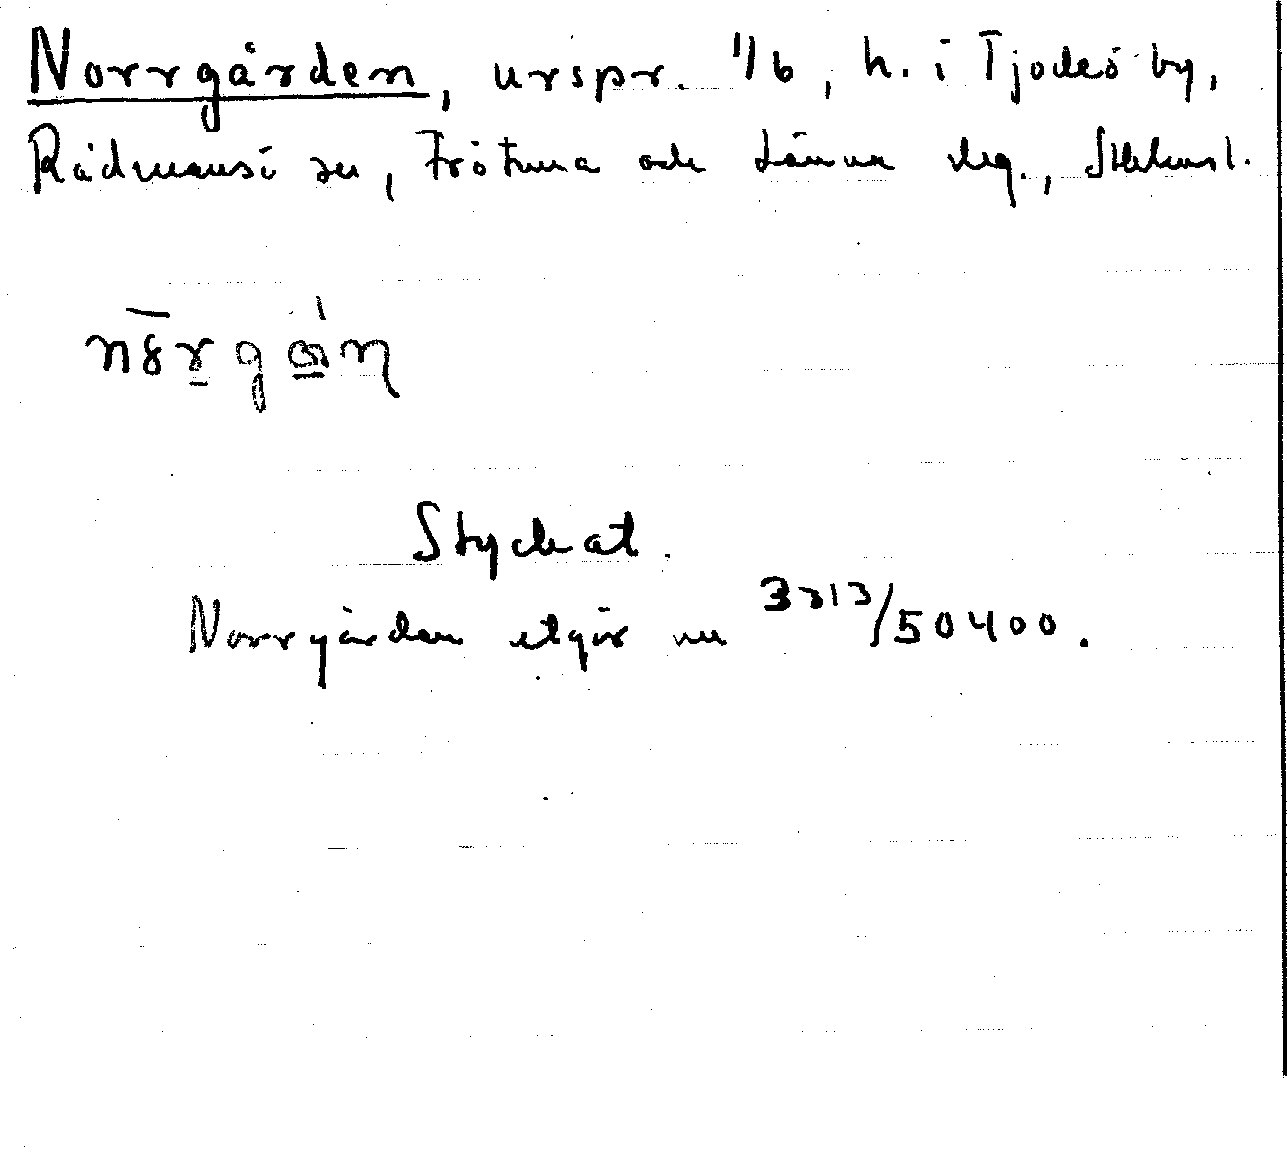 Norrgården, urspr. 1/6, h. i Tjockö by,
Rådmansö sn, Frötuna och Länna slg., Sthlmsl.
Styckat.
Norrgården utgör nu 3313/50400.